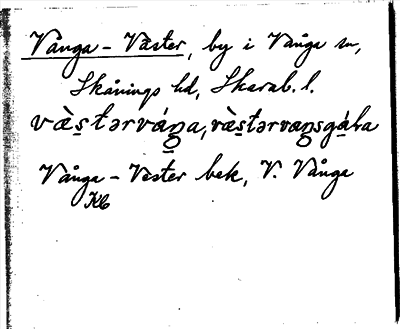 Vånga - Väster, by i Vånga sn,
Skånings hd, Skarab. l.
vä̀s̠tərváŋa, vä̀s̠tərvaŋsgáɫa
Vånga - Väster bek, V. Vånga
Kb